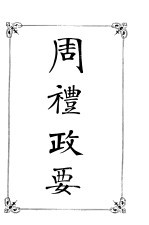 周禮政要